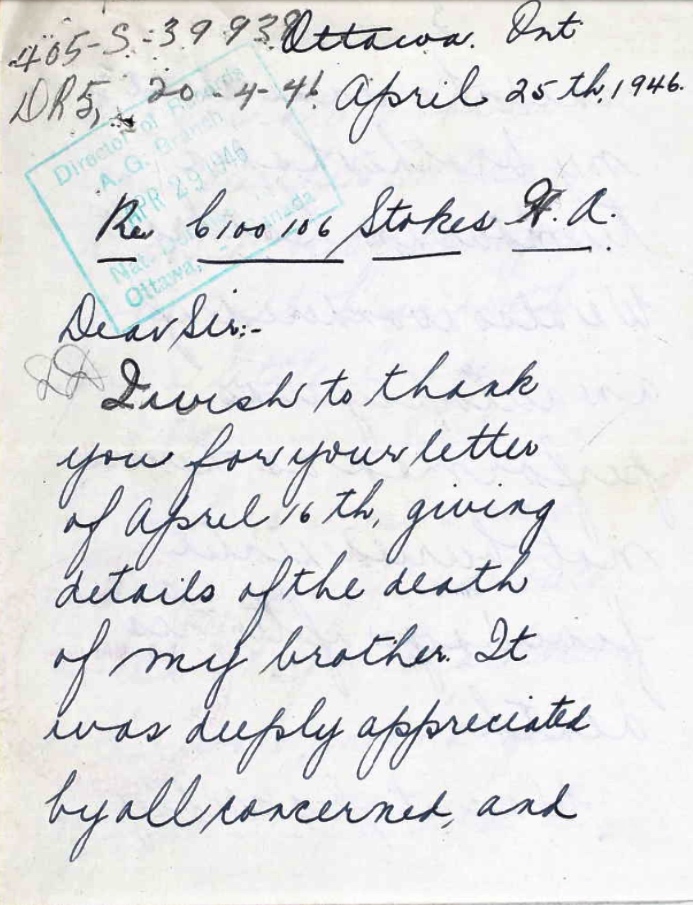 405-S-39938 Ottawa. Ont
DR5, 20-4-46 April 25th, 1946.
Director of Records
A. G. Branch
APR 29 1946
Nat. Defence, Canada
Ottawa,
Re C100106 Stokes H. A.
Dear Sir:-
I wish to thank
you for your letter
of April 16th, giving
details of the death
of my brother. It
was deeply appreciated
by all concerned, and